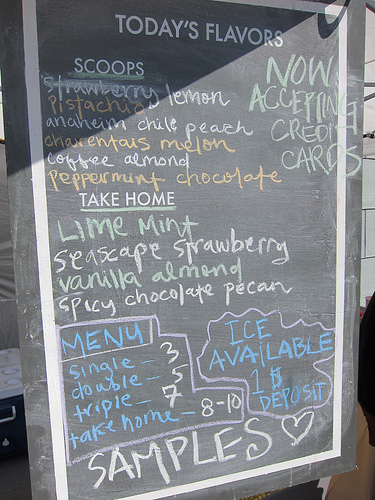 TODAY'S FLAVORS
SCOOPS
strawberry lemon
Pistachio
anaheim chile peach
charentais melon
coffee almond
Peppermint chocolate
NOW
ACCEPTING
CREDIT
CARDS
TAKE HOME
Lime Mint
Seascape Strawberry
vanilla almond
spicy chocolate pecan
MENU
single - 3
double - 5
triple - 7
take home - 8-10
ICE
AVAILABLE
1$
DEPOSIT
SAMPLES